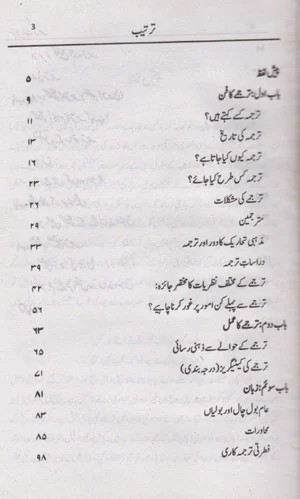 3
ترتیب
پیش لفظ ۵
باب اول: ترجمے کا فن ۹
ترجمہ کسے کہتے ہیں؟ ۱۱
ترجمہ کی تاریخ ۱۳
ترجمہ کیوں کیا جاتا ہے؟ ۱۶
ترجمہ کس طرح کیا جائے؟ ۲۳
ترجمے کی مشکلات ۲۶
مترجمین ۲۹
مذہبی تحاریک کا دور اور ترجمہ ۳۳
دراساتِ ترجمہ ۳۹
ترجمے کے مختلف نظریات کا مختصر جائزہ: ۴۲
ترجمے سے پہلے کن امور پر غور کرنا چاہیے؟ ۵۶
باب دوم: ترجمے کا عمل ۶۳
ترجمے کے حوالے سے ذہنی رسائی ۶۵
ترجمے کی کیٹیگریز (درجہ بندی) ۷۱
باب سوئم: زبان ۸۱
عام بول چال اور بولیاں ۸۳
محاورات ۸۵
فطرتی ترجمہ کاری ۹۸